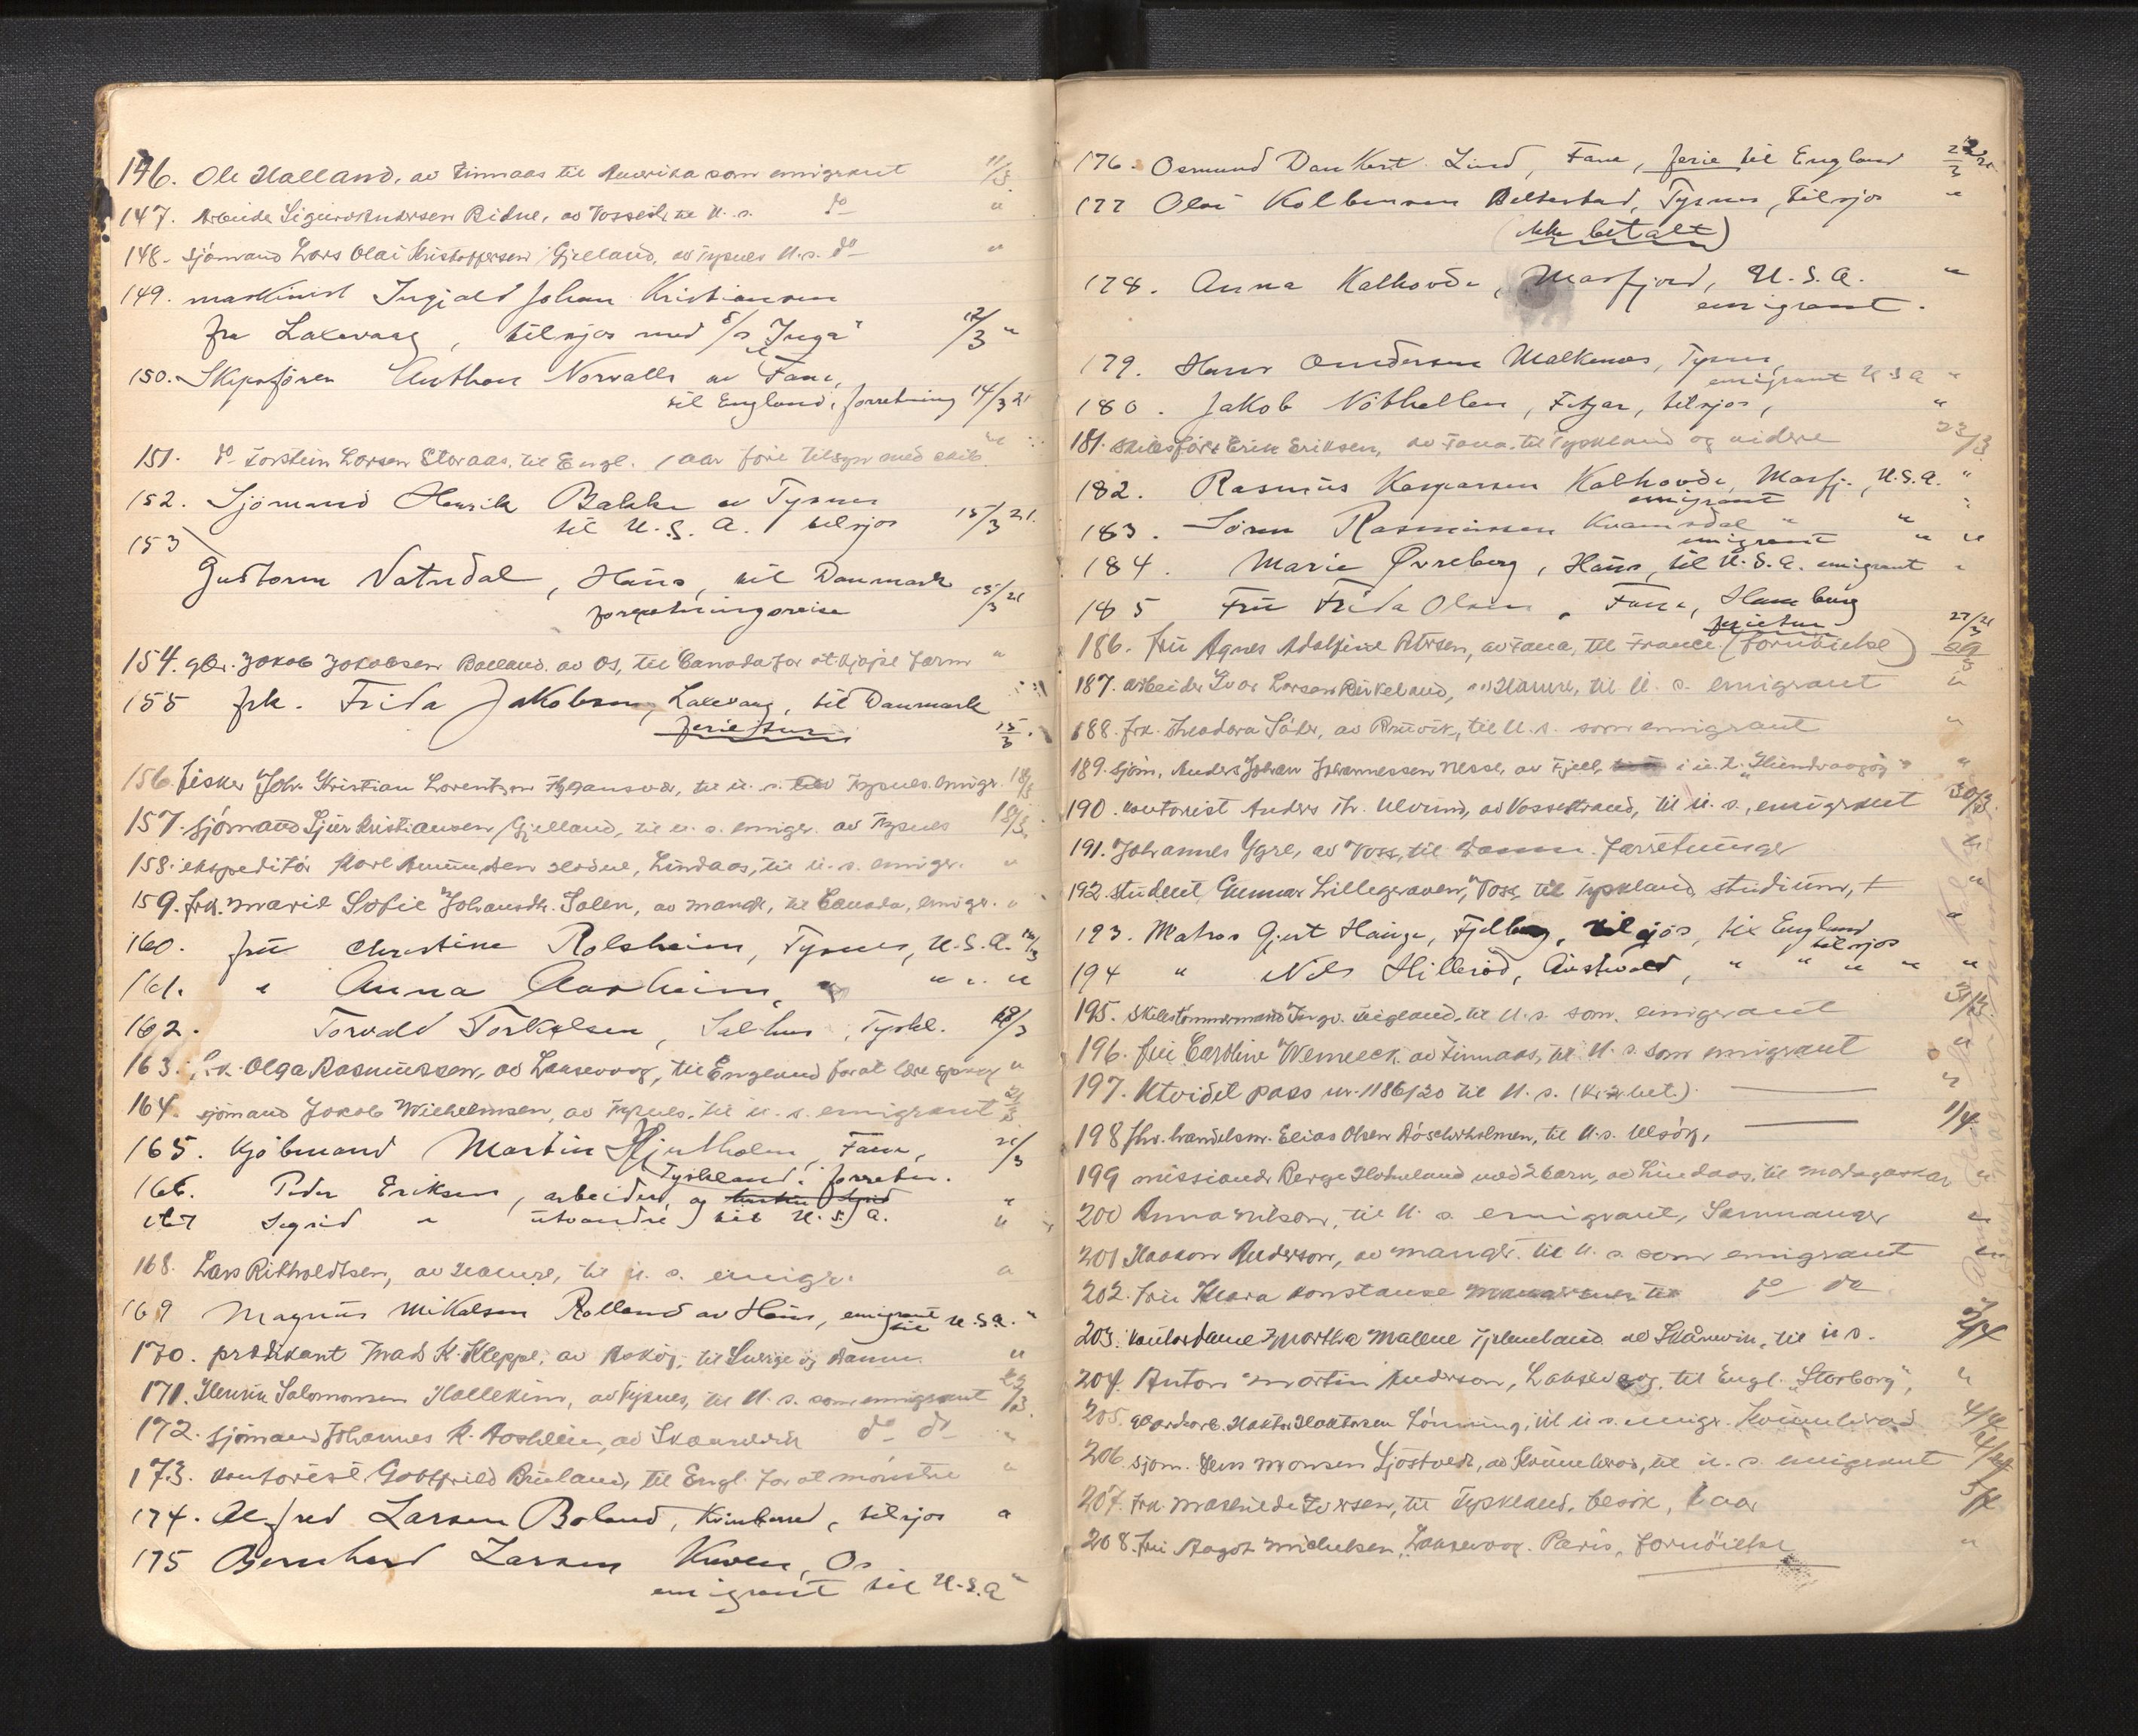 146. Ole Halland, av Finnaas til Amerika som emigrant 11/3
147. Arbeider Sigurd Andersen Bidne, av Vossestr. til U. s. do "
148. sjömand Lars Olai Kristoffersen Gjelland, av Tysnes U. s. do "
149. maskinist Ingjald Johan Kristiansen
fra Laxevaag, tilsjøs med s/s "Inga" 12/3 "
150. Skipsfören Anthon Norvalls av Fane,
til England, forretning 14/3 21
151. do Torstein Larsen Storaas, til Engl.
152. Sjömand Henrik Bakke av Tysnes
til U. S. A. tilsjøs 15/3 21.
153
Guttorm Vatndal, Haus, til Danmark
forretningsreise 15/3 21
154. gbr. Jakob Jakobsen Bolland, av Os, til Canada for at kjøpe farm "
155 frk. Frida Jakobsen, Laxevaag, til Danmark
ferietur 15/3
156. fisker Johs. Kristian Lorentzen, til U. s. Tysnes. emigr. 18/3
157. sjömand Sjur Kristiansen Gjelland, til U. s. emigr. av Tysnes 18/3
158. ekspeditör Karl Amundsen, Lindaas, til U. s. emigr. "
159. frk. Marie Sofie Johansdtr. Solen, av Manger, til Canada, emigr. "
160. frü Christine Rolsheim, Tysnes, U.S.A.
161. " Anna Aarheim, " " " "
162. Torvald Torkelsen, Salhus, Tyskl. 19/3
163. frk. Olga Rasmussen, av Laksevaag, til England for at lære sprog "
164. sjömand Jakob Wilhelmsen, av Tysnes, til U. s. emigrant 21/3
165. Kjöbmand Martin Hjertholm, Fane, 21/3
Tyskland. forretn.
166. Peder Eriksen, arbeider, og "
167 Sigrid " utvandre) til U. S. A. "
168. Lars Ritholdtsen, av Hamre, til U. s. emigr. "
169 Magnus Mikalsen Rolland av Haus, emigrant til U.S.A. "
170. prædikant Mads K. Kleppe, av Askøy, til Sverige og Danm. "
171. Henrik Salomonsen Hallekim, av Tysnes, til U. s. som emigrant 22/3
172. sjömand Johannes K. Aasheim, av Skaanevik do do "
173. kontorist Gottfried Birkeland, til Engl. for at mönstre "
174. Alfred Larsen Boland, Kvinherred, tilsjøs "
175 Bernhard Larsen Kuven, Os
emigrant til U.S.A "
176. Osmund Dankert Lind, Fane, ferie til England 22/3 21
177 Olai Kolbensen Beltestad, Tysnes, tilsjøs "
(ikke betalt)
178. Anna Kalhovde, Masfjord, U.S.A. "
emigrant.
179. Hans Andersen Malkenes, Tysnes,
emigrant U S A "
180. Jakob Nöthellen, Fitjar, tilsjøs, "
181. skibsförer Erik Eriksen, av Fana, til Tyskland og videre 23/3
182. Rasmus Kaspersen Kalhovde, Masfj., U.S.A. "
emigrant
183. Sören Rasmussen Kvamsdal " " "
emigrant
184. Marie Øvreberg, Haus, til U.S.A. emigrant "
185 Frü Frida Olsen, Fane, Hamburg
ferietur
186. frü Agnes Adolfine Petersen, av Fana, til France. (fornöielse)
187. arbeider Ivar Larsen Birkeland, av Hamre, til U. s. emigrant "
188. frk. Theodora Säter, av Bruvik, til U. s. som emigrant "
189. sjöm. Anders Johan Johannessen Nesse, av Fjell, "
190. kontorist Anders Th. Ulvund, av Vossestrand, til U. s., emigrant 30/3
191. Johannes Ygre, av Voss, til Danm. forretninger "
192. student Gunnar Lillegraven, Voss, til Tyskland, studium, "
193. Matros Gjert Hauge, Fjelberg, tilsjös, til England "
tilsjos
194 " Nils Hillerød, Austevold, " " " " "
195. Skibstömmermand Ingv. Vigland, til U. s. som emigrant 31/3
196. frü Caroline Werneeck av Finnaas, til U. s. som emigrant "
197. Utvidet pass nr. 1186/20 til U. s. "
198 fhv. handelsm. Elias Olsen Röscherholmen, til U. s. 1/4
199 missionær Berge Hodneland med 2 barn, av Lindaas, til Madagaskar "
200 Anna Nilsen, til U. s. emigrant, Samnanger "
201 Haakon Anderson, av Manger til U. s. som emigrant "
202. frü Klara Konstanse til do do
203. kontordame Martha Malene Tjelmeland av Skånevik, til U s. 2/4
204. Anton Martin Anderson, Laksevaag, til Engl. "Storborg", "
205. Haktor Haktorsen Lönning, til U s. emigr. Kvinnherad 4/4
206. sjöm. Jens Monsen Sjöstvedt, av Kvinnherad, til U. s. emigrant 4/4
207. frk. Mathilde Iversen, til Tyskland, besök, 1 aar 5/4
208. frü Aagot Michelsen, Laksevaag. Paris, fornöielse "